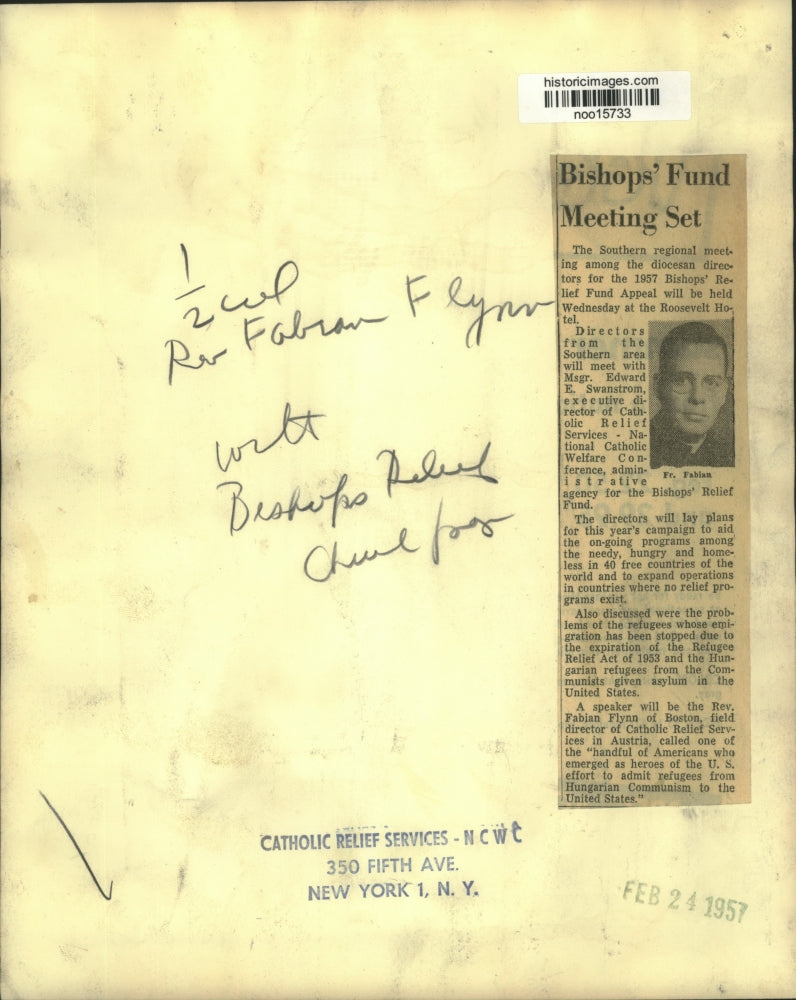 historicimages.com
noo15733
Bishops' Fund
Meeting Set
The Southern regional meet-
ing among the diocesan direc-
tors for the 1957 Bishops' Re-
lief Fund Appeal will be held
Wednesday at the Roosevelt Ho-
tel.
Directors
from the
Southern area
will meet with
Msgr. Edward
E. Swanstrom,
executive di-
rector of Cath-
olic Relief
Services - Na-
tional Catholic
Welfare Con-
ference, admin-
istrative
agency for the Bishops' Relief
Fund.
Fr. Fabian
The directors will lay plans
for this year's campaign to aid
the on-going programs among
the needy, hungry and home-
less in 40 free countries of the
world and to expand operations
in countries where no relief pro-
grams exist.
Also discussed were the prob-
lems of the refugees whose emi-
gration has been stopped due to
the expiration of the Refugee
Relief Act of 1953 and the Hun-
garian refugees from the Com-
munists given asylum in the
United States.
A speaker will be the Rev.
Fabian Flynn of Boston, field
director of Catholic Relief Serv-
ices in Austria, called one of
the "handful of Americans who
emerged as heroes of the U. S.
effort to admit refugees from
Hungarian Communism to the
United States."
1/2 col
Rev Fabian Flynn
with
Bishops Relief
CATHOLIC RELIEF SERVICES - N C W C
350 FIFTH AVE.
NEW YORK 1, N. Y.
FEB 24 1957